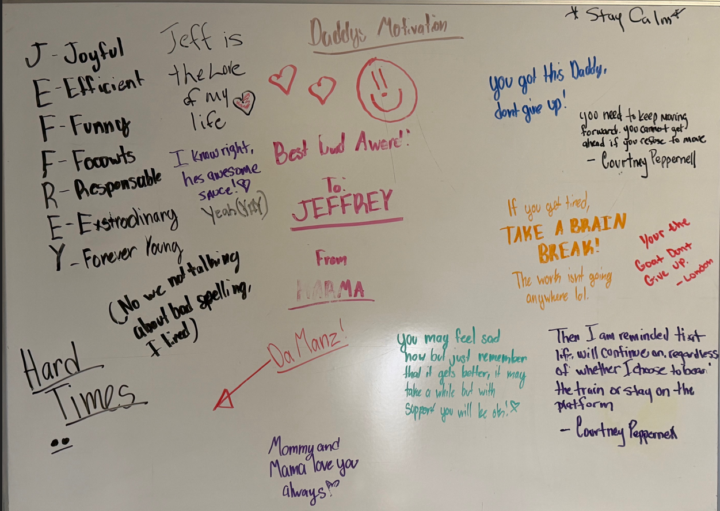 J - Joyful
E - Efficient
F - Funny
F - Focouts
R - Responsable
E - Exstrodinary
Y - Forever Young
(No we not talking
about bad spelling,
I lied)
Hard
Times
Jeff is
the love
of my
life
I know right,
hes awesome
sauce!
Yeah
Daddys Motivation
Best Dad Award!
To:
JEFFREY
From
KARMA
Da Manz!
Mommy and
Mama love you
always!
*Stay Calm*
you got this Daddy,
dont give up!
you need to keep moving
forward. you cannot get
ahead if you refuse to move
- Courtney Peppernell
If you get tired,
TAKE A BRAIN
BREAK!
The work isnt going
anywhere lol.
Your the
Goat Dont
Give up.
- London
you may feel sad
now but just remember
that it gets better, it may
take a while but with
support you will be ok!
Then I am reminded that
life will continue on, regardless
of whether I choose to board
the train or stay on the
platform
- Courtney Peppernell